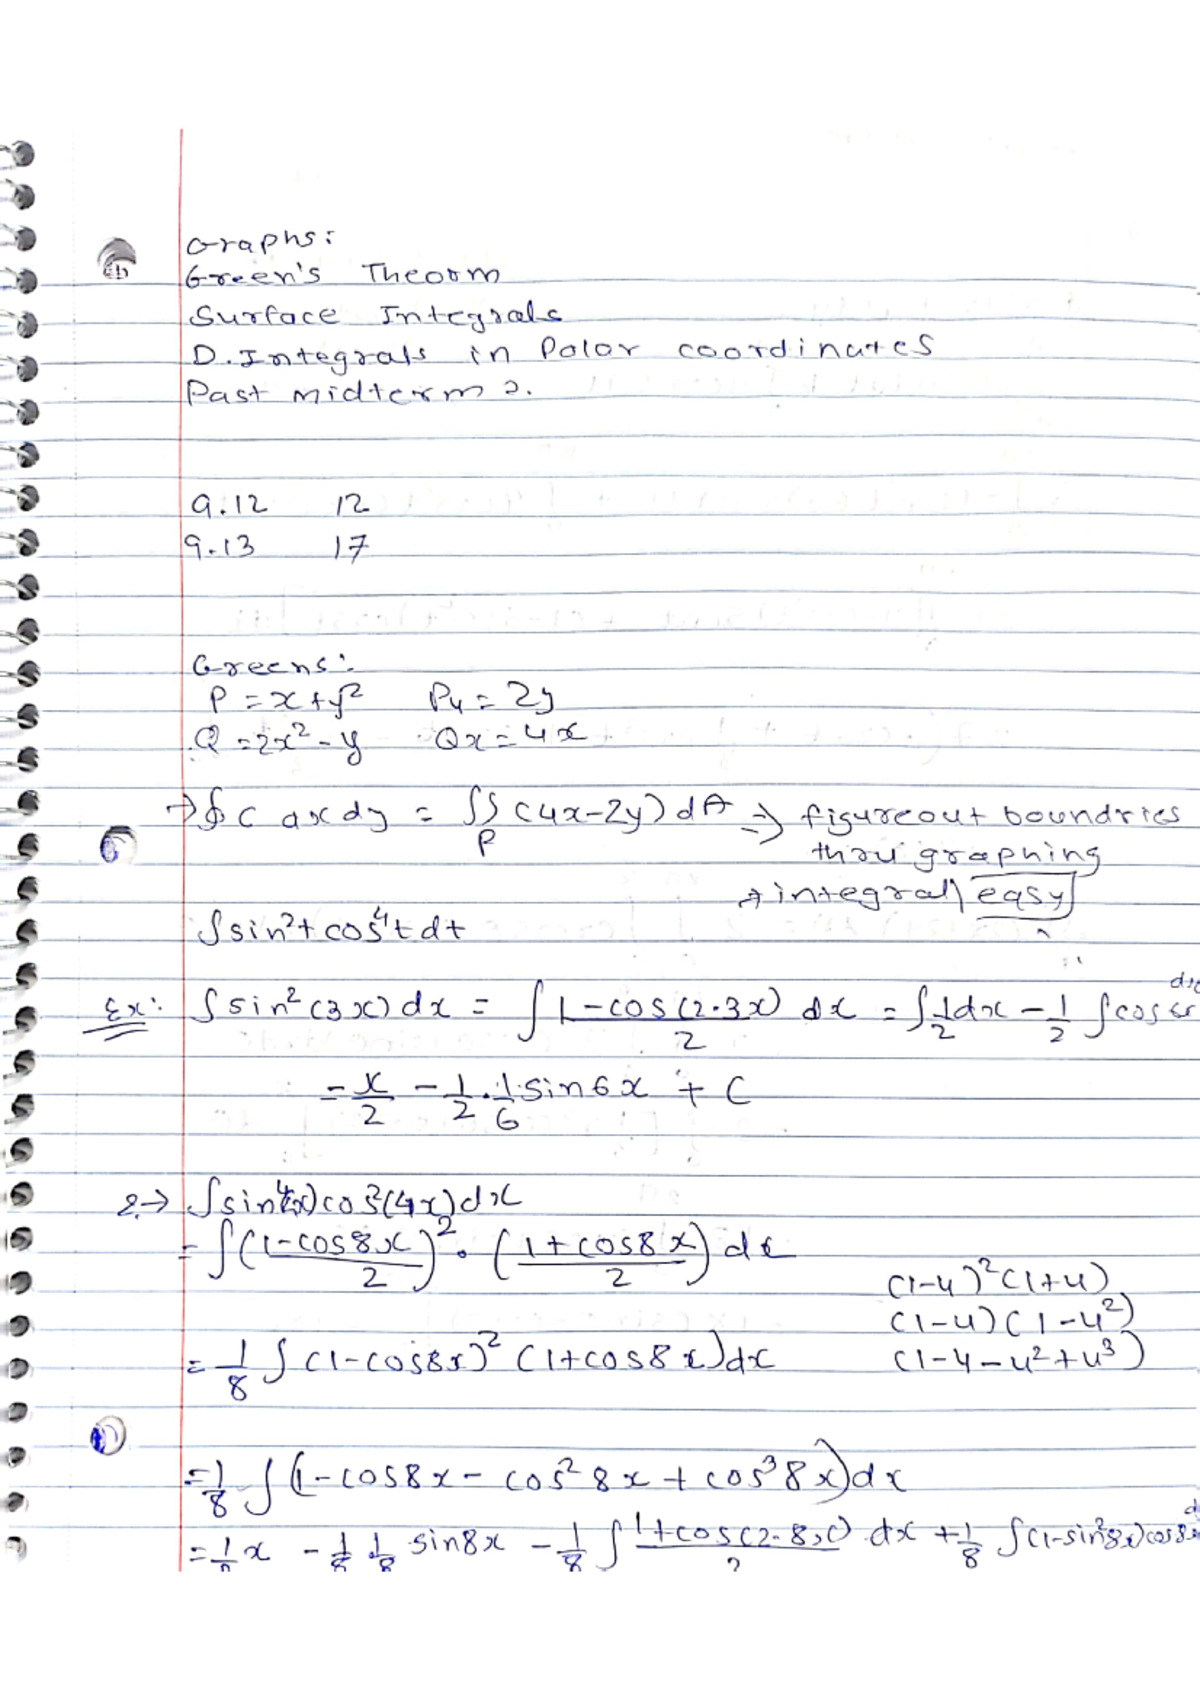 Graphs:
Green's Theorm
Surface Integrals
D. Integrals in Polar coordinates
Past midterm 2.
9.12 12
9.13 17
Greens:
P = x + y² Py = 2y
Q = 2x² - y Qx = 4x
→ ∮ C dxdy = ∬ (4x-2y) dA ⇒ figureout boundries
R thru graphing
→ integral easy
∫ sin²t cos⁴t dt
Ex: ∫ sin²(3x) dx = ∫ 1-cos(2·3x)/2 dx = ∫ 1/2 dx - 1/2 ∫ cos 6x dx
= x/2 - 1/2 · 1/6 sin6x + C
2. → ∫ sin⁴(4x) cos²(4x) dx
= ∫ (1-cos8x/2)² · (1+cos8x/2) dx
(1-u)²(1+u)
(1-u)(1-u²)
= 1/8 ∫ (1-cos8x)² (1+cos8x) dx (1-u-u²+u³)
= 1/8 ∫ (1-cos8x - cos²8x + cos³8x) dx
= 1/8 x - 1/8 1/8 sin8x - 1/8 ∫ 1+cos(2·8x)/2 dx + 1/8 ∫ (1-sin²8x) cos8x